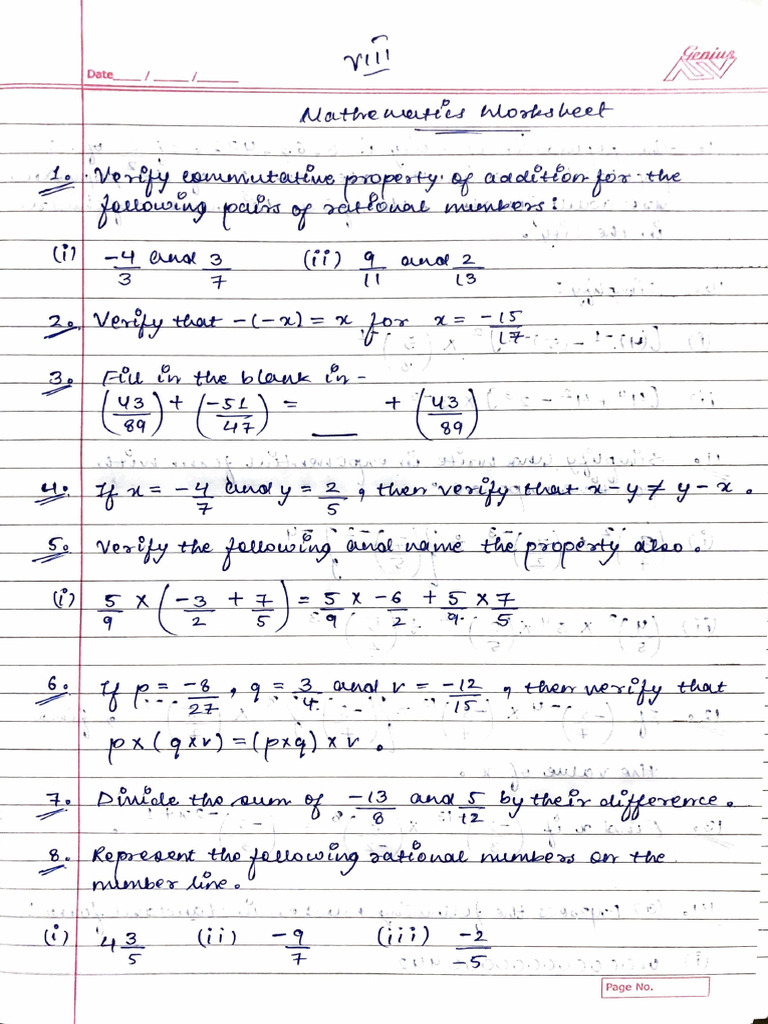 viii
Genius
Date ___ / ___ / ___
Mathematics Worksheet
1. Verify commutative property of addition for the
following pairs of rational numbers:
(i) -4/3 and 3/7 (ii) 9/11 and 2/13
2. Verify that -(-x) = x for x = -15/17
3. Fill in the blank in -
(43/89) + (-51/47) = ___ + (43/89)
4. If x = -4/7 and y = 2/5, then verify that x - y ≠ y - x.
5. Verify the following and name the property also.
(i) 5/9 × (-3/2 + 7/5) = 5/9 × -6/2 + 5/9 × 7/5
6. If p = -8/27, q = 3/4 and r = -12/15, then verify that
p × (q × r) = (p × q) × r.
7. Divide the sum of -13/8 and 5/12 by their difference.
8. Represent the following rational numbers on the
number line.
(i) 4 3/5 (ii) -9/7 (iii) -2/-5
Page No.